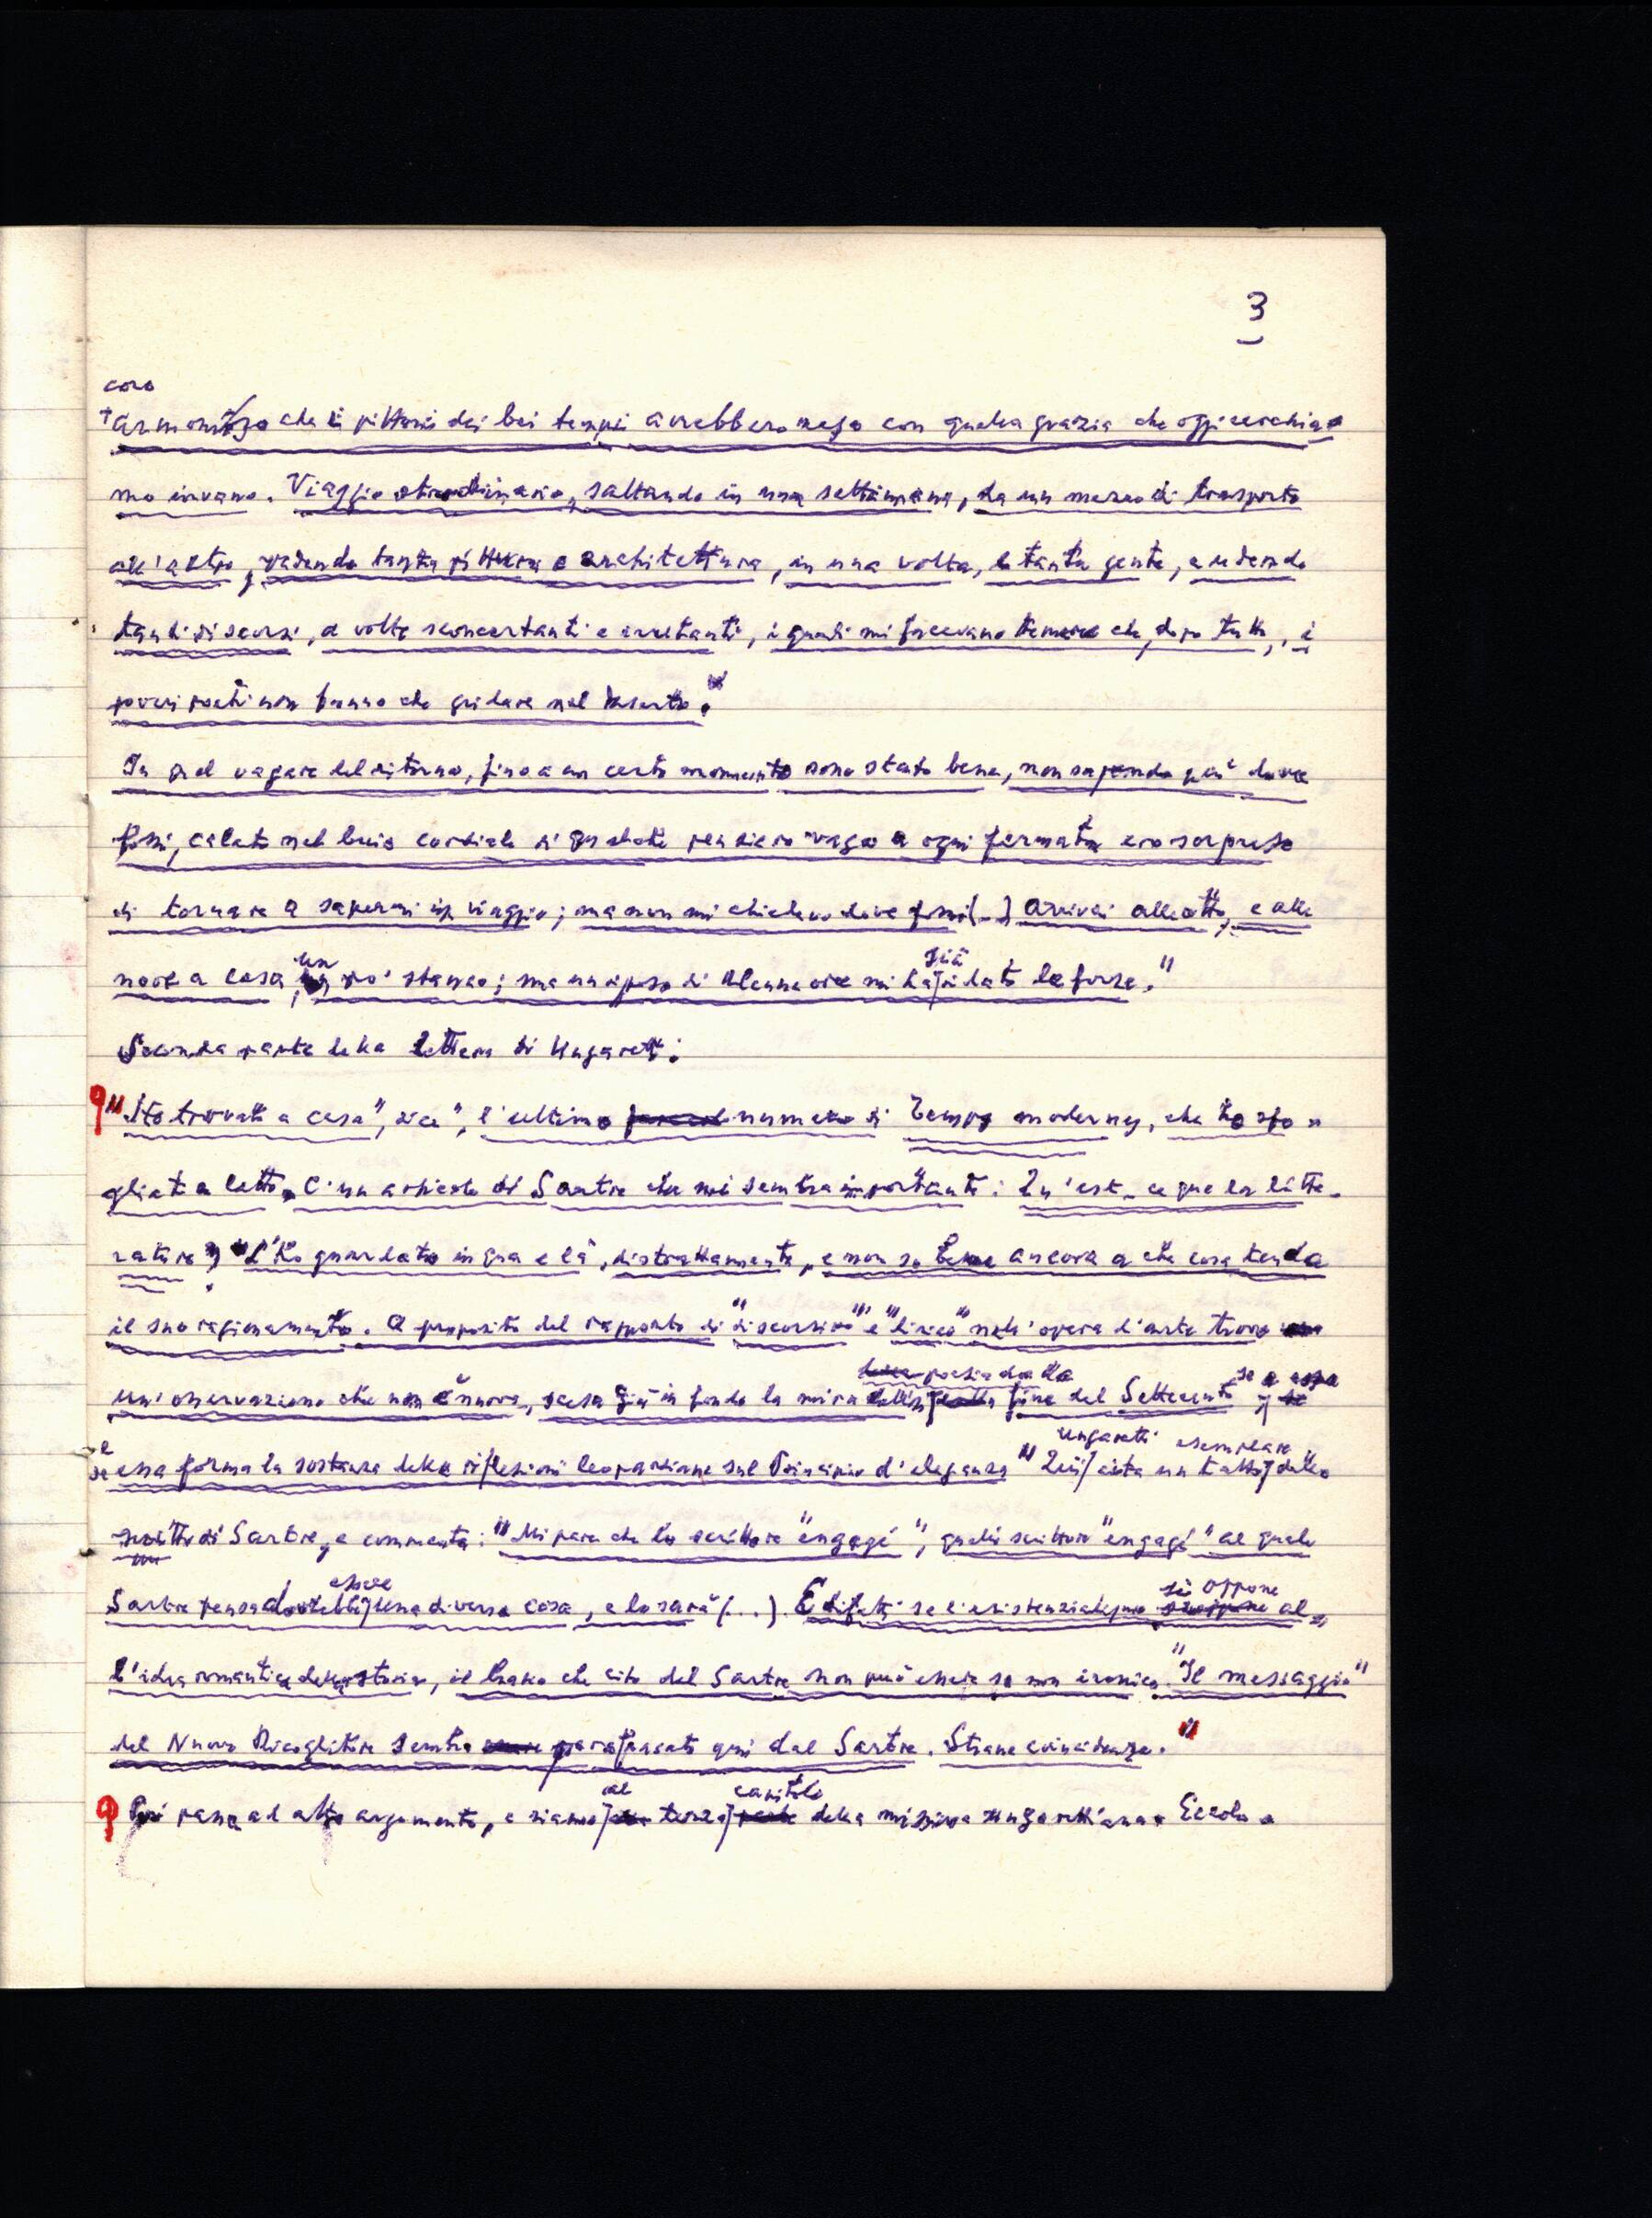 3
coro
armonioso che i pittori dei bei tempi avrebbero reso con quella grazia che oggi cerchia=
mo invano. Viaggio straordinario, saltando in una settimana, da un mezzo di trasporto
all'altro, vedendo tanta pittura e architettura, in una volta, e tanta gente, e udendo
tanti discorsi, a volte sconcertanti e irritanti, i quali mi facevano temere che, dopo tutto, i
poveri poeti non fanno che gridare nel deserto."
In quel vagare del ritorno, fino a un certo momento sono stato bene, non sapendo più dove
fossi, calato nel buio cordiale di qualche pensiero vago a ogni fermata ero sorpreso
di tornare a sapermi in viaggio; ma non mi chiedevo dove fossi (...) Arrivai alle otto, e alle
nove a casa, un po' stanco; ma un riposo di alcune ore mi ha già ridato le forze."
Seconda parte della lettera di Ungaretti:
"Ho trovato a casa", dice, "l'ultimo numero di Temps modernes, che ho sfo=
gliato a letto. C'è un articolo di Sartre che mi sembra importante: Qu'est-ce que la litté-
rature? L'ho guardato in qua e là, distrattamente, e non so bene ancora a che cosa tenda
il suo ragionamento. A proposito del rapporto di "discorsivo" e "lirico" nell'opera d'arte trovo
un'osservazione che non è nuova, essa già in fondo la mira della poesia dalla fine del Settecento, se a essa
e se essa forma la sostanza delle riflessioni leopardiane sul Principio d'eleganza" Qui Ungaretti cita un tratto esemplare dello
scritto di Sartre, e commenta: "Mi pare che lo scrittore "engagé", quello scrittore "engagé" al quale
Sartre pensa dovrebbe essere una diversa cosa, e lo sarà (...). E difatti se l'esistenzialismo si oppone al=
l'idea romantica della storia, il brano che cito del Sartre non può essere se non ironico. "Il messaggio"
del Nuovo Ricoglitore sembra parafrasato qui dal Sartre. Strane coincidenze."
Qui passa ad altro argomento, e siamo al terzo capitolo della missiva ungarettiana. Eccolo.